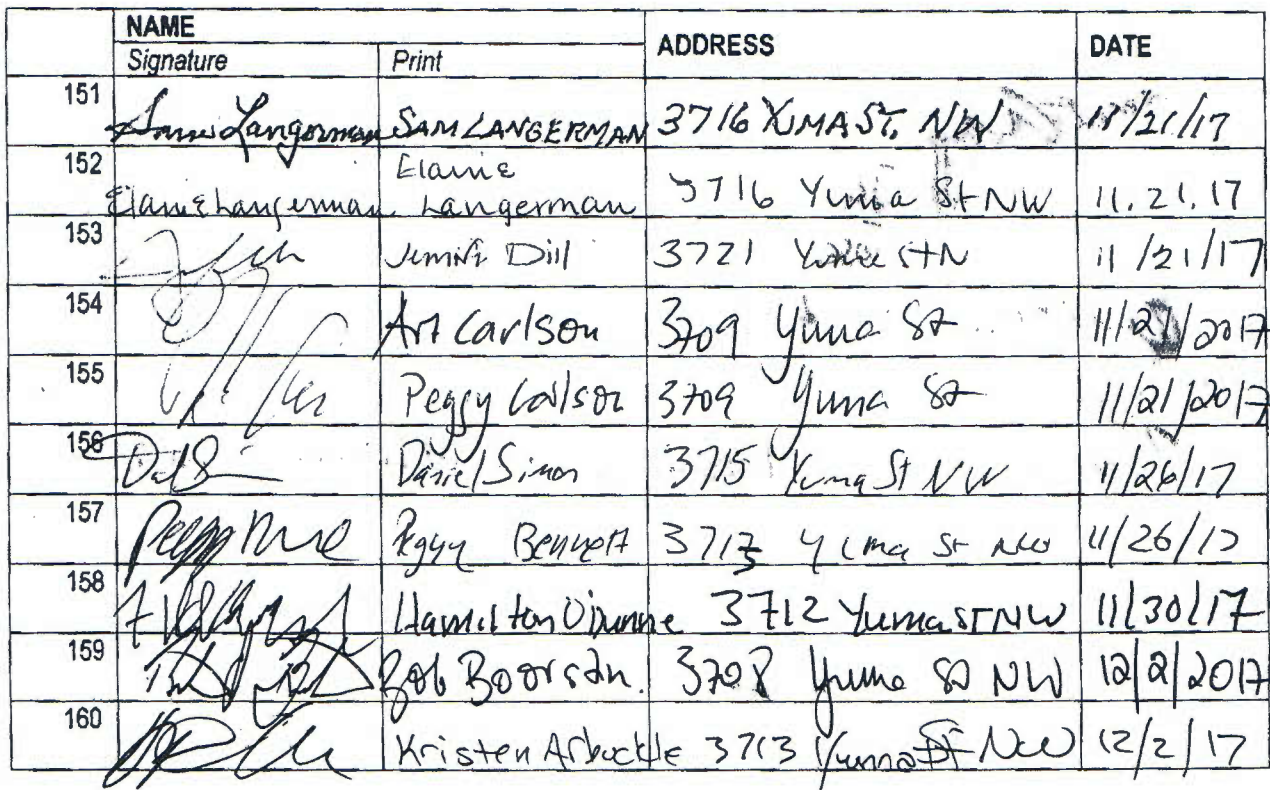 NAME ADDRESS DATE
Signature Print
151 Langerman SAM LANGERMAN 3716 YUMA ST. NW 11/21/17
152 Elaine Langerman Elaine Langerman 3716 Yuma St NW 11.21.17
153 Dill 3721 Yuma St N 11/21/17
154 Art Carlson 3709 Yuma St 11/21/2017
155 Peggy Carlson 3709 Yuma St 11/21/2017
156 Daniel Simon 3715 Yuma St NW 11/26/17
157 Peggy Bennett Yuma St NW 11/26/17
158 Hamilton 3712 Yuma ST NW 11/30/17
159 Bob Boorstin. 3708 Yuma St NW 12/2/2017
160 Kristen Arbuckle 3713 Yuma St NW 12/2/17